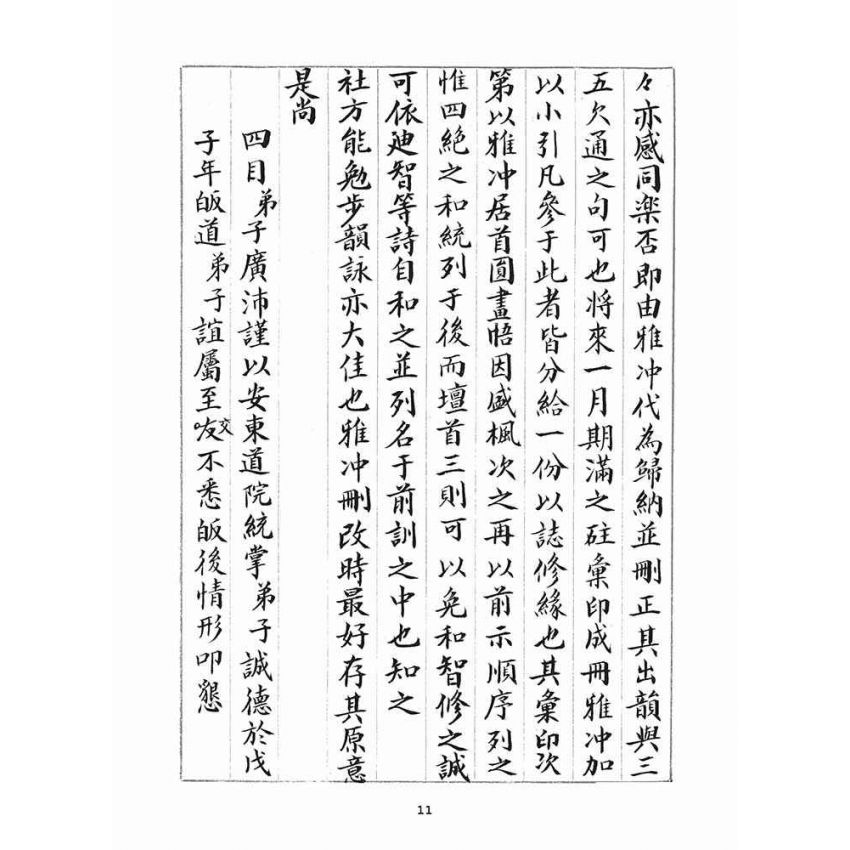 々亦感同楽否即由雅冲代為歸納並刪正其出韻與三
五欠通之句可也將來一月期滿之硅彙印成冊雅冲加
以小引凡參于此者皆分給一份以誌修緣也其彙印次
第以雅冲居首圓晝悟因盛楓次之再以前示順序列之
惟四絶之和統列于後而壇首三則可以免和智修之誠
可依廸智等詩自和之並列名于前訓之中也知之
社方能勉步韻詠亦大佳也雅冲刪改時最好存其原意
是尚
四目弟子廣沛謹以安東道院統掌弟子誠德於戊
子年皈道弟子誼屬至交不悉皈後情形叩懇
11